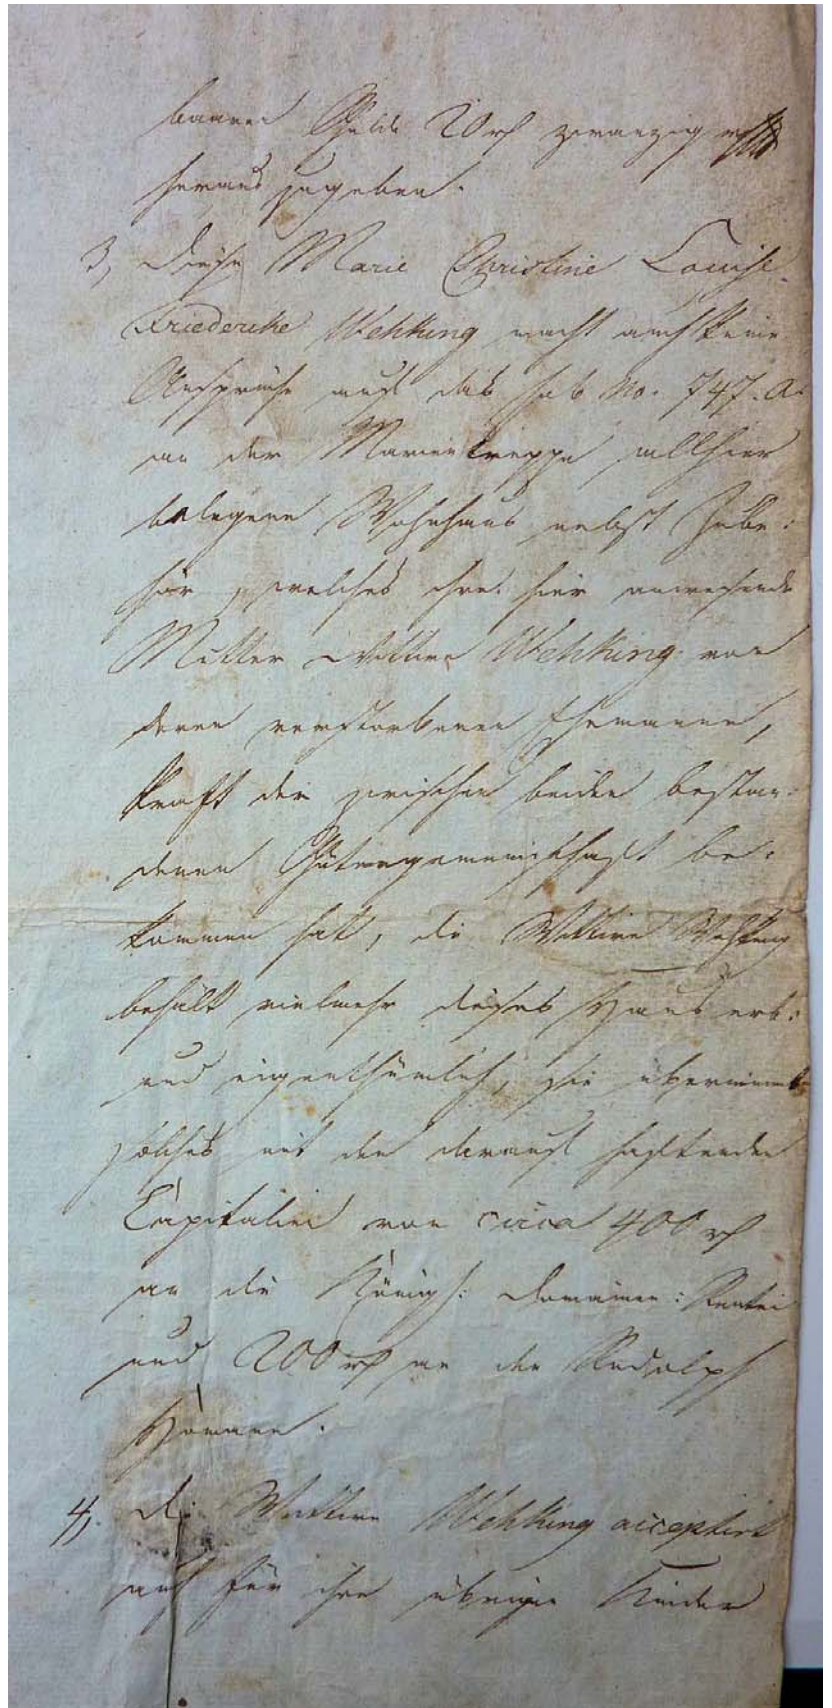 baarem Gelde 20 rth zwanzig rth
heraus zugeben.
3, Diese Marie Christine Louise
Friedericke Wehking macht auch keine
Ansprüche auf das sub No. 747. a.
an der Marientreppe allhier
belegene Wohnhaus nebst Zube:
hör, welches ihre hier anwesende
Mutter Wittwe Wehking von
deren verstorbenen Ehemanne,
kraft der zwischen beiden bestan:
denen Gütergemeinschaft be:
kommen hat, die Wittwe Wehking
behält vielmehr dieses Haus erb:
und eigenthümlich, sie übernimmt
solches mit den darauf haftenden
Capitalien von circa 400 rth
an die Königl: Domainen: Rentei
und 200 rth an den Rudolph
4). die Wittwe Wehking acceptirt
auch für ihre übrigen Kinder